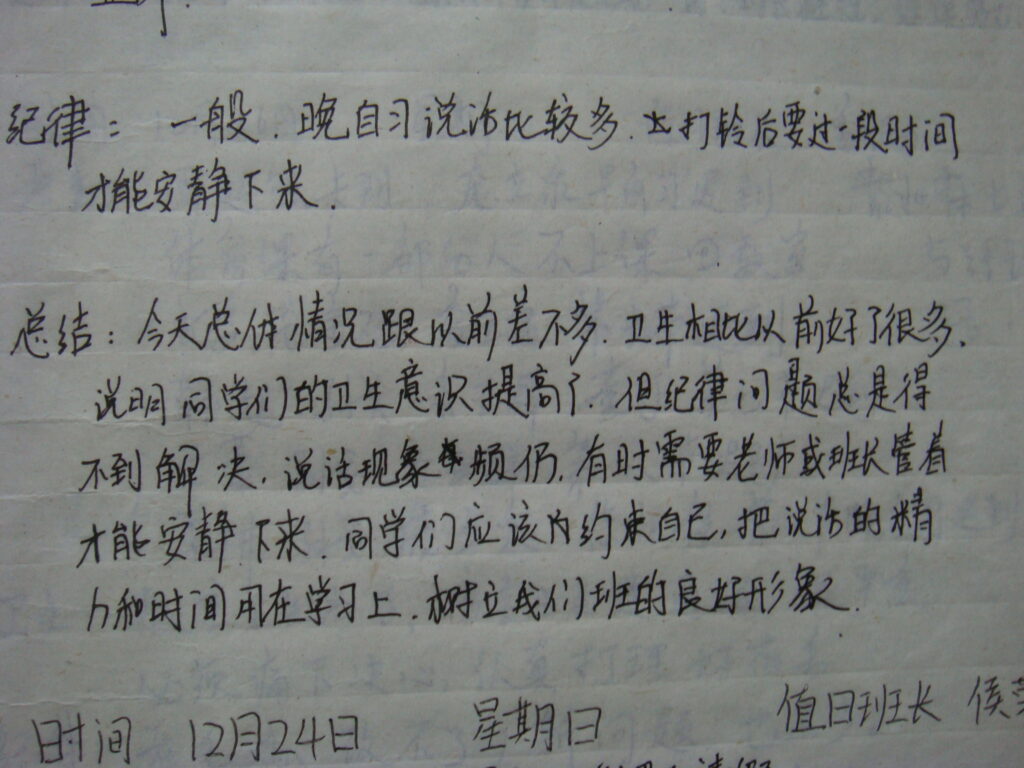 纪律：一般．晚自习说话比较多．打铃后要过一段时间
才能安静下来．
总结：今天总体情况跟以前差不多．卫生相比以前好了很多．
说明同学们的卫生意识提高了．但纪律问题总是得
不到解决．说话现象频仍．有时需要老师或班长管着
才能安静下来．同学们应该约束自己，把说话的精
力和时间用在学习上．树立我们班的良好形象．
时间 12月24日 星期日 值日班长 侯